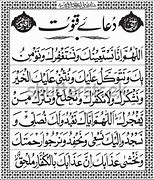 دُعائے قنوت
اَللّٰهُمَّ اِنَّا نَسْتَعِيْنُكَ وَنَسْتَغْفِرُكَ وَنُؤْمِنُ
بِكَ وَنَتَوَكَّلُ عَلَيْكَ وَنُثْنِيْ عَلَيْكَ الْخَيْرَ
وَنَشْكُرُكَ وَلَا نَكْفُرُكَ وَنَخْلَعُ وَنَتْرُكُ مَنْ
يَّفْجُرُكَ اَللّٰهُمَّ اِيَّاكَ نَعْبُدُ وَلَكَ نُصَلِّيْ وَ
نَسْجُدُ وَاِلَيْكَ نَسْعٰى وَنَحْفِدُ وَنَرْجُوْا رَحْمَتَكَ
وَنَخْشٰى عَذَابَكَ اِنَّ عَذَابَكَ بِالْكُفَّارِ مُلْحِقٌ